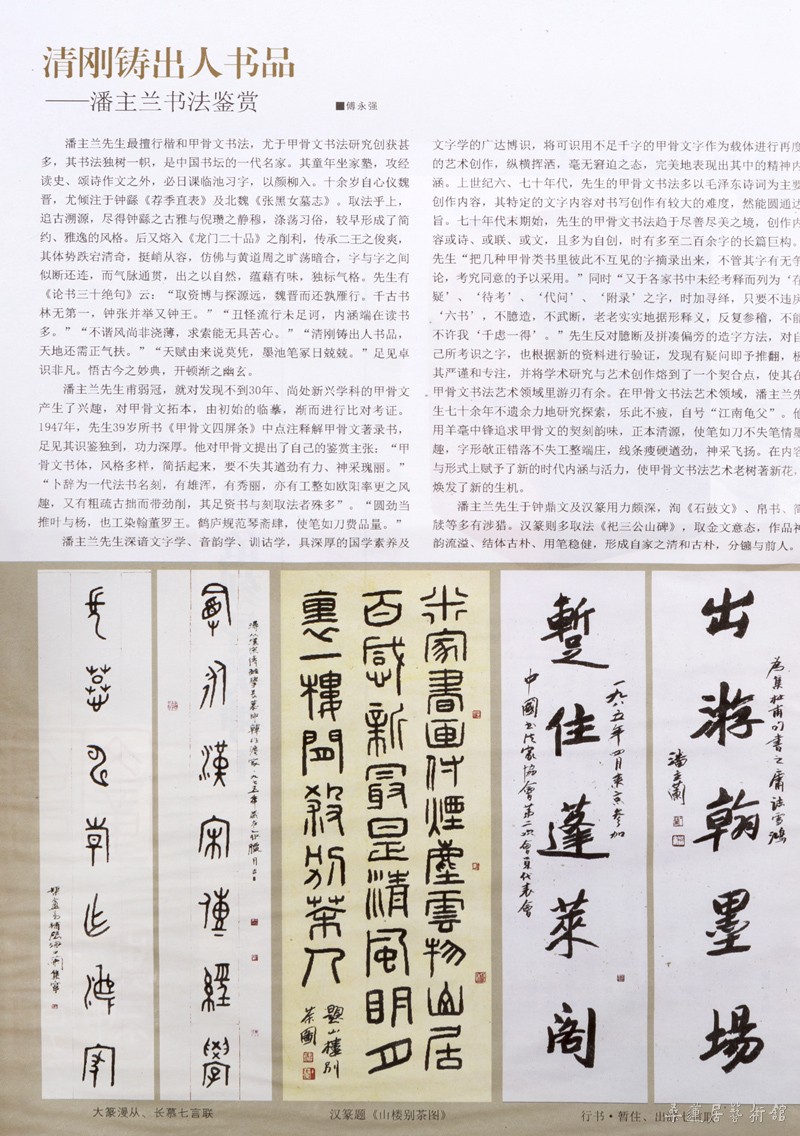 清刚铸出人书品
——潘主兰书法鉴赏
■傅永强
潘主兰先生最擅行楷和甲骨文书法，尤于甲骨文书法研究创获甚
多，其书法独树一帜，是中国书坛的一代名家。其童年坐家塾，攻经
读史、颂诗作文之外，必日课临池习字，以颜柳入。十余岁自心仪魏
晋，尤倾注于钟繇《荐季直表》及北魏《张黑女墓志》。取法乎上，
追古溯源，尽得钟繇之古雅与倪瓒之静穆，涤荡习俗，较早形成了简
约、雅逸的风格。后又熔入《龙门二十品》之削利，传承二王之俊爽，
其体势跌宕清奇，挺峭从容，仿佛与黄道周之旷荡暗合，字与字之间
似断还连，而气脉通贯，出之以自然，蕴藉有味，独标气格。先生有
《论书三十绝句》云：“取资博与探源远，魏晋而还孰雁行。千古书
林无第一，钟张并举又钟王。”“丑怪流行未足诃，内涵端在读书
多。”“不谐风尚非浇薄，求索能无具苦心。”“清刚铸出人书品，
天地还需正气扶。”“天赋由来说莫凭，墨池笔冢日兢兢。”足见卓
识非凡。悟古今之妙典，开顿渐之幽玄。
潘主兰先生甫弱冠，就对发现不到30年、尚处新兴学科的甲骨文
产生了兴趣，对甲骨文拓本，由初始的临摹，渐而进行比对考证。
1947年，先生39岁所书《甲骨文四屏条》中点注释解甲骨文著录书，
足见其识鉴独到，功力深厚。他对甲骨文提出了自己的鉴赏主张：“甲
骨文书体，风格多样，简括起来，要不失其遒劲有力、神采瑰丽。”
“卜辞为一代法书名刻，有雄浑，有秀丽，亦有工整如欧阳率更之风
趣，又有粗疏古拙而带劲削，其足资书与刻取法者殊多”。“圆劲当
推叶与杨，也工染翰董罗王。鹤庐规范琴斋肆，使笔如刀贵品量。”
潘主兰先生深谙文字学、音韵学、训诂学，具深厚的国学素养及
文字学的广达博识，将可识用不足千字的甲骨文字作为载体进行再度
的艺术创作，纵横挥洒，毫无窘迫之态，完美地表现出其中的精神内
涵。上世纪六、七十年代，先生的甲骨文书法多以毛泽东诗词为主要
创作内容，其特定的文字内容对书写创作有较大的难度，然能圆通达
旨。七十年代末期始，先生的甲骨文书法趋于尽善尽美之境，创作内
容或诗、或联、或文，且多为自创，时有多至二百余字的长篇巨构。
先生“把几种甲骨类书里彼此不互见的字摘录出来，不管其字有无争
论，考究同意的予以采用。”同时“又于各家书中未经考释而列为‘存
疑’、‘待考’、‘代问’、‘附录’之字，时加寻绎，只要不违戾
‘六书’，不臆造，不武断，老老实实地据形释义，反复参稽，不能
不许我‘千虑一得’。”先生反对臆断及拼凑偏旁的造字方法，对自
己所考识之字，也根据新的资料进行验证，发现有疑问即予推翻，极
其严谨和专注，并将学术研究与艺术创作熔到了一个契合点，使其在
甲骨文书法艺术领域里游刃有余。在甲骨文书法艺术领域，潘主兰先
生七十余年不遗余力地研究探索，乐此不疲，自号“江南龟父”。他
用羊毫中锋追求甲骨文的契刻韵味，正本清源，使笔如刀不失笔情墨
趣，字形欹正错落不失工整端庄，线条瘦硬遒劲，神采飞扬。在内容
与形式上赋予了新的时代内涵与活力，使甲骨文书法艺术老树著新花，
焕发了新的生机。
潘主兰先生于钟鼎文及汉篆用力颇深，洵《石鼓文》、帛书、简
牍等多有涉猎。汉篆则多取法《祀三公山碑》，取金文意态，作品神
韵流溢、结体古朴、用笔稳健，形成自家之清和古朴，分镳与前人。
米家書画付煙塵雲物山居
百感新最是清風明月
裏一樓閒殺別茶人
題山樓別
茶圖
暫住蓬萊阁
一九八五年四月来京参加
中國书法家協會第二次會員代表會
出游翰墨場
為集杜甫句書之
潘主蘭
大篆漫从、长慕七言联
汉篆题《山楼别茶图》
行书·暂住、出游七言联
美篱居藝術館